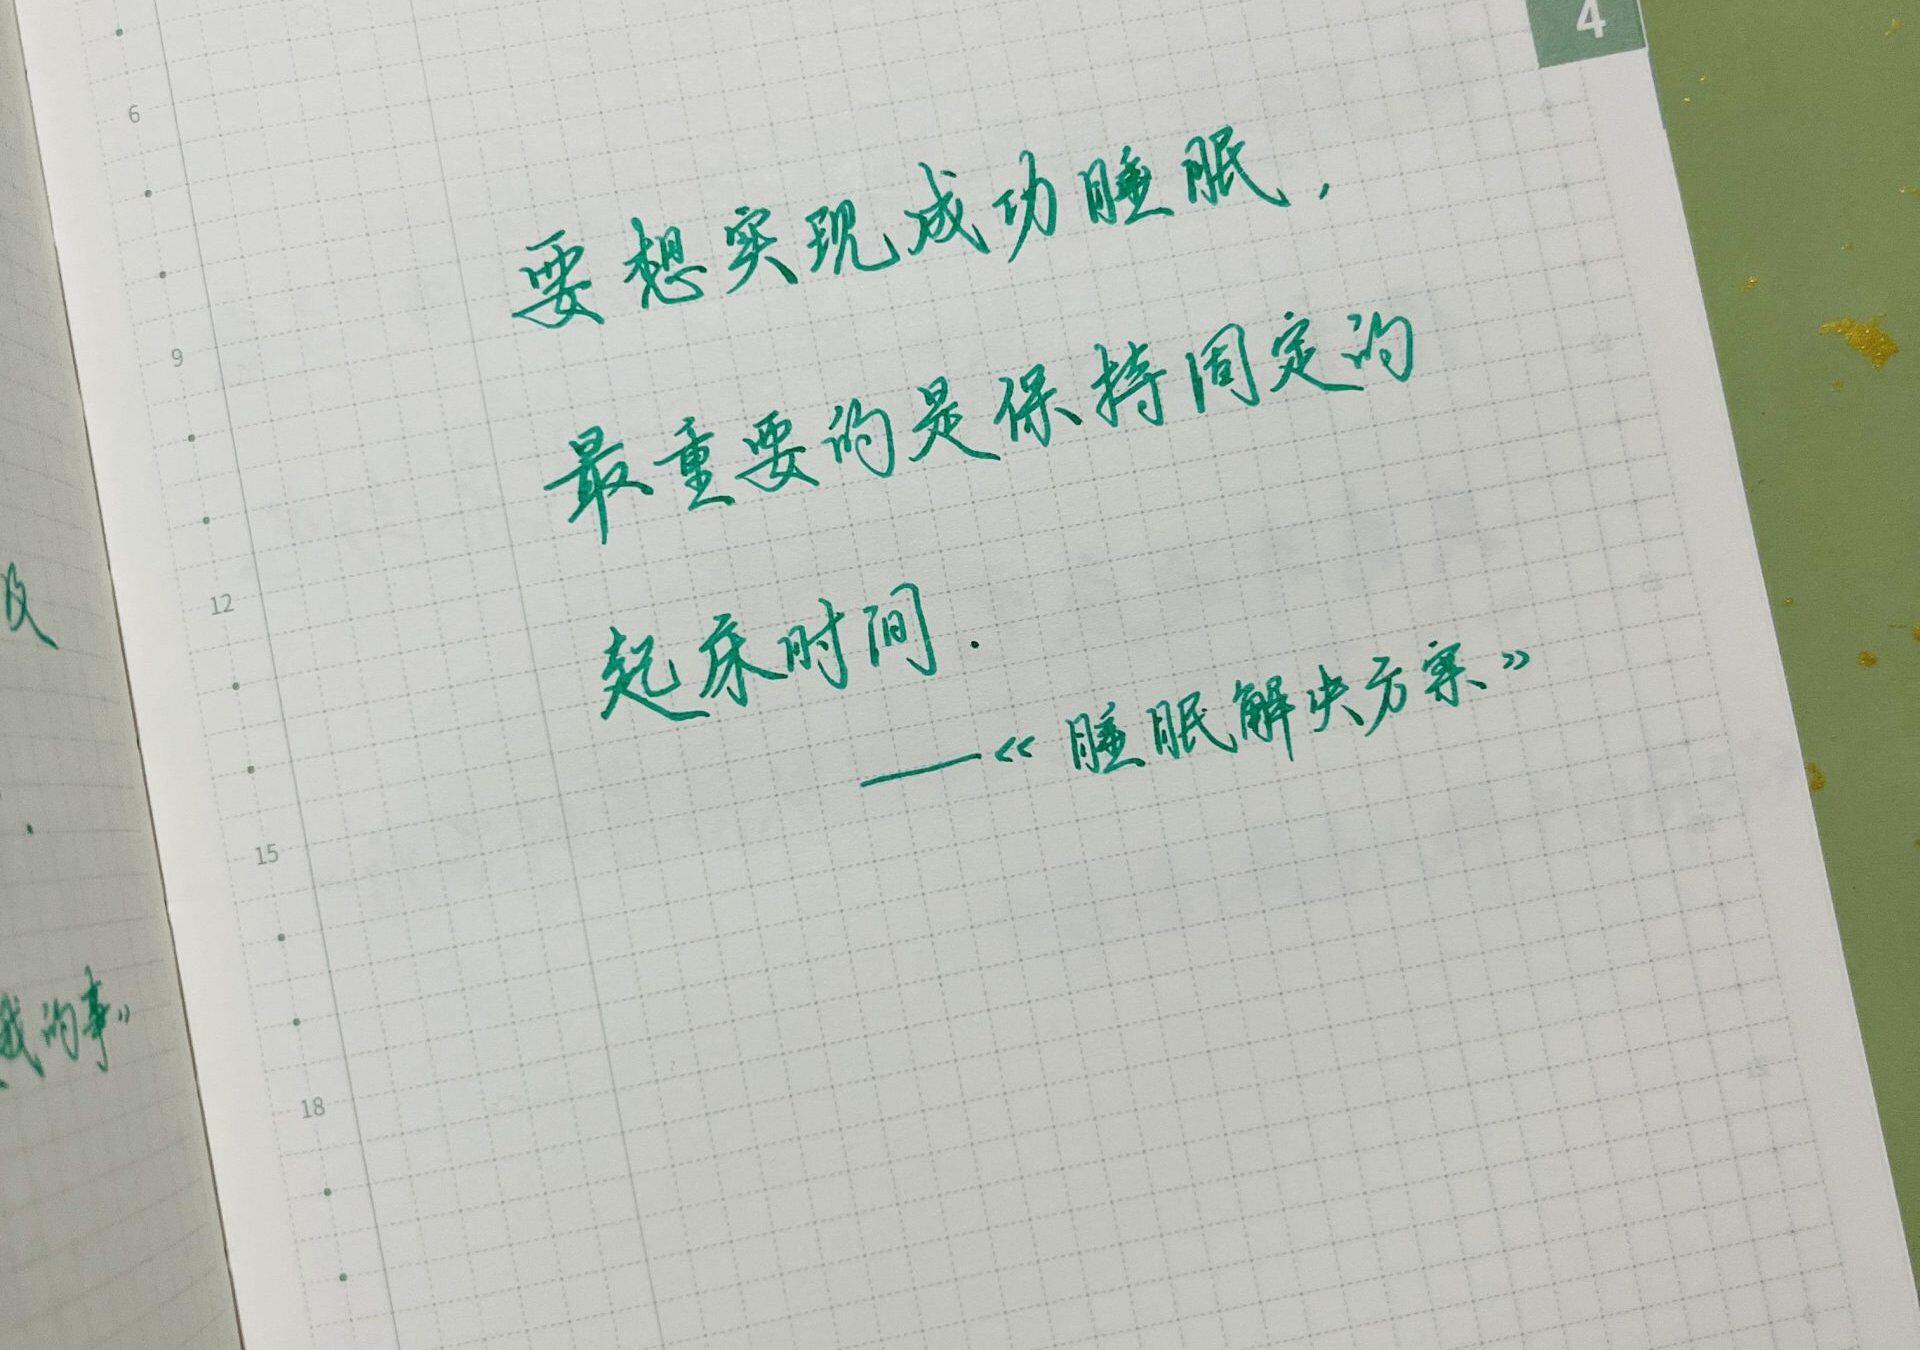 4
6
要想实现成功睡眠，
9
最重要的是保持固定的
12
及
起床时间.
——《睡眠解决方案》
15
我的事》
18